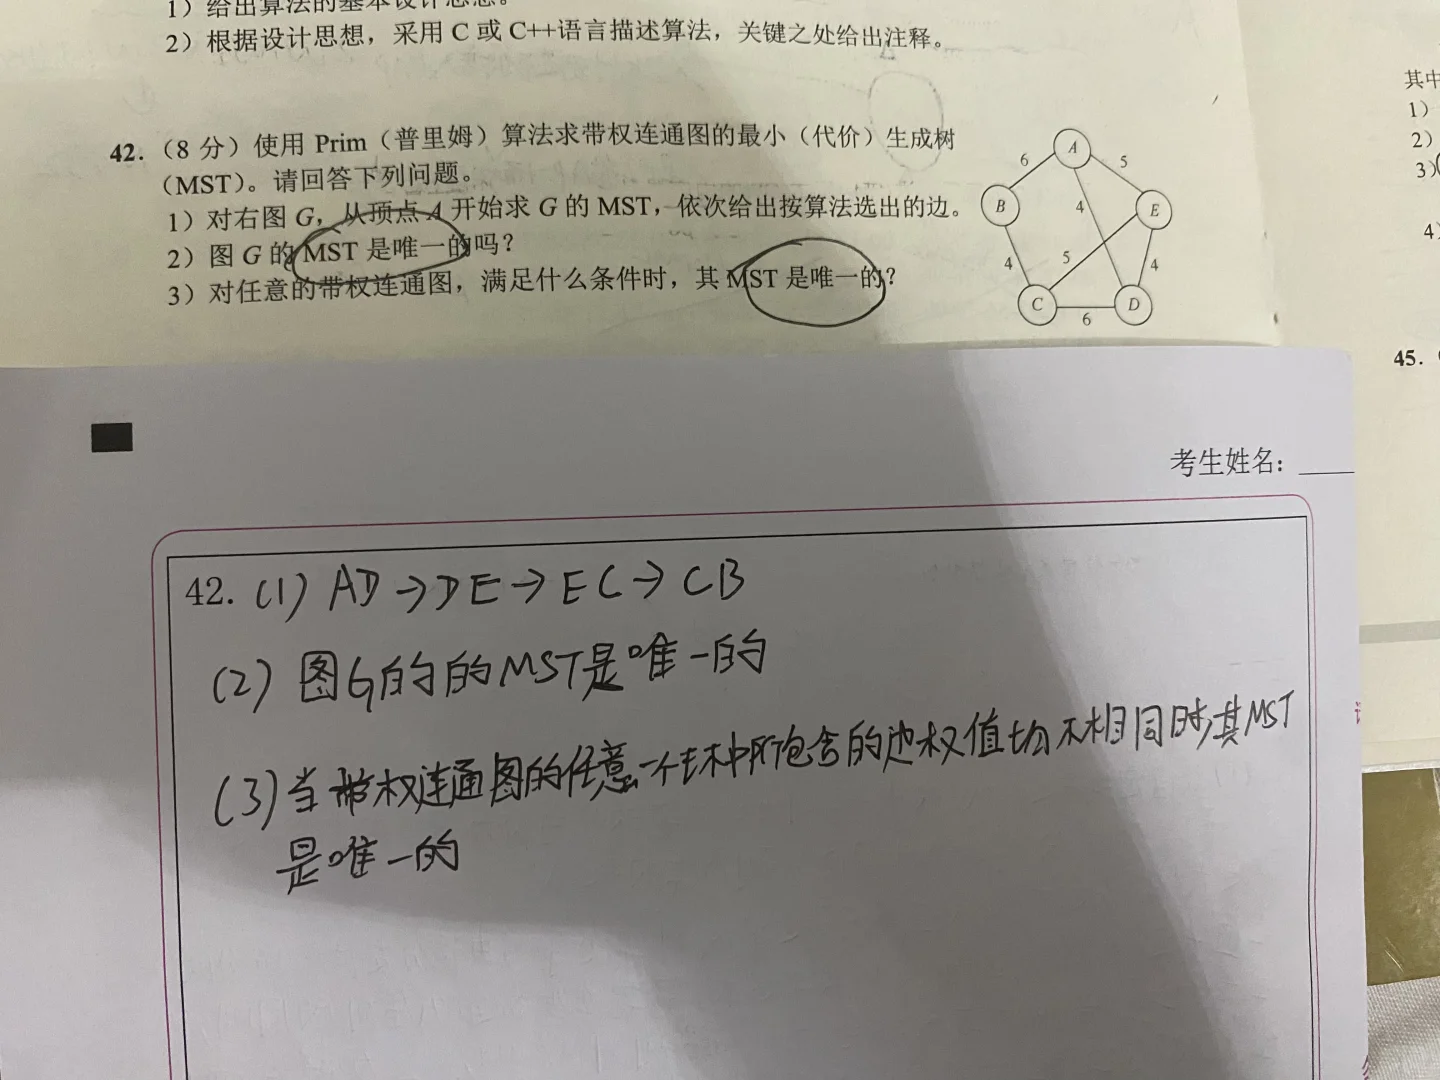 1）给出算法的基本设计思想。
2）根据设计思想，采用 C 或 C++语言描述算法，关键之处给出注释。
42．（8 分）使用 Prim（普里姆）算法求带权连通图的最小（代价）生成树
（MST）。请回答下列问题。
1）对右图 G，从顶点 A 开始求 G 的 MST，依次给出按算法选出的边。
2）图 G 的 MST 是唯一的吗？
3）对任意的带权连通图，满足什么条件时，其 MST 是唯一的？
A
6
5
B
4
E
4
5
4
C
D
6
其中
1）
2）
3）
4）
45．
考生姓名：
42. (1) AD→DE→EC→CB
(2) 图G的的MST是唯一的
(3) 当带权连通图的任意一个环中所包含的边权值均不相同时,其MST
是唯一的